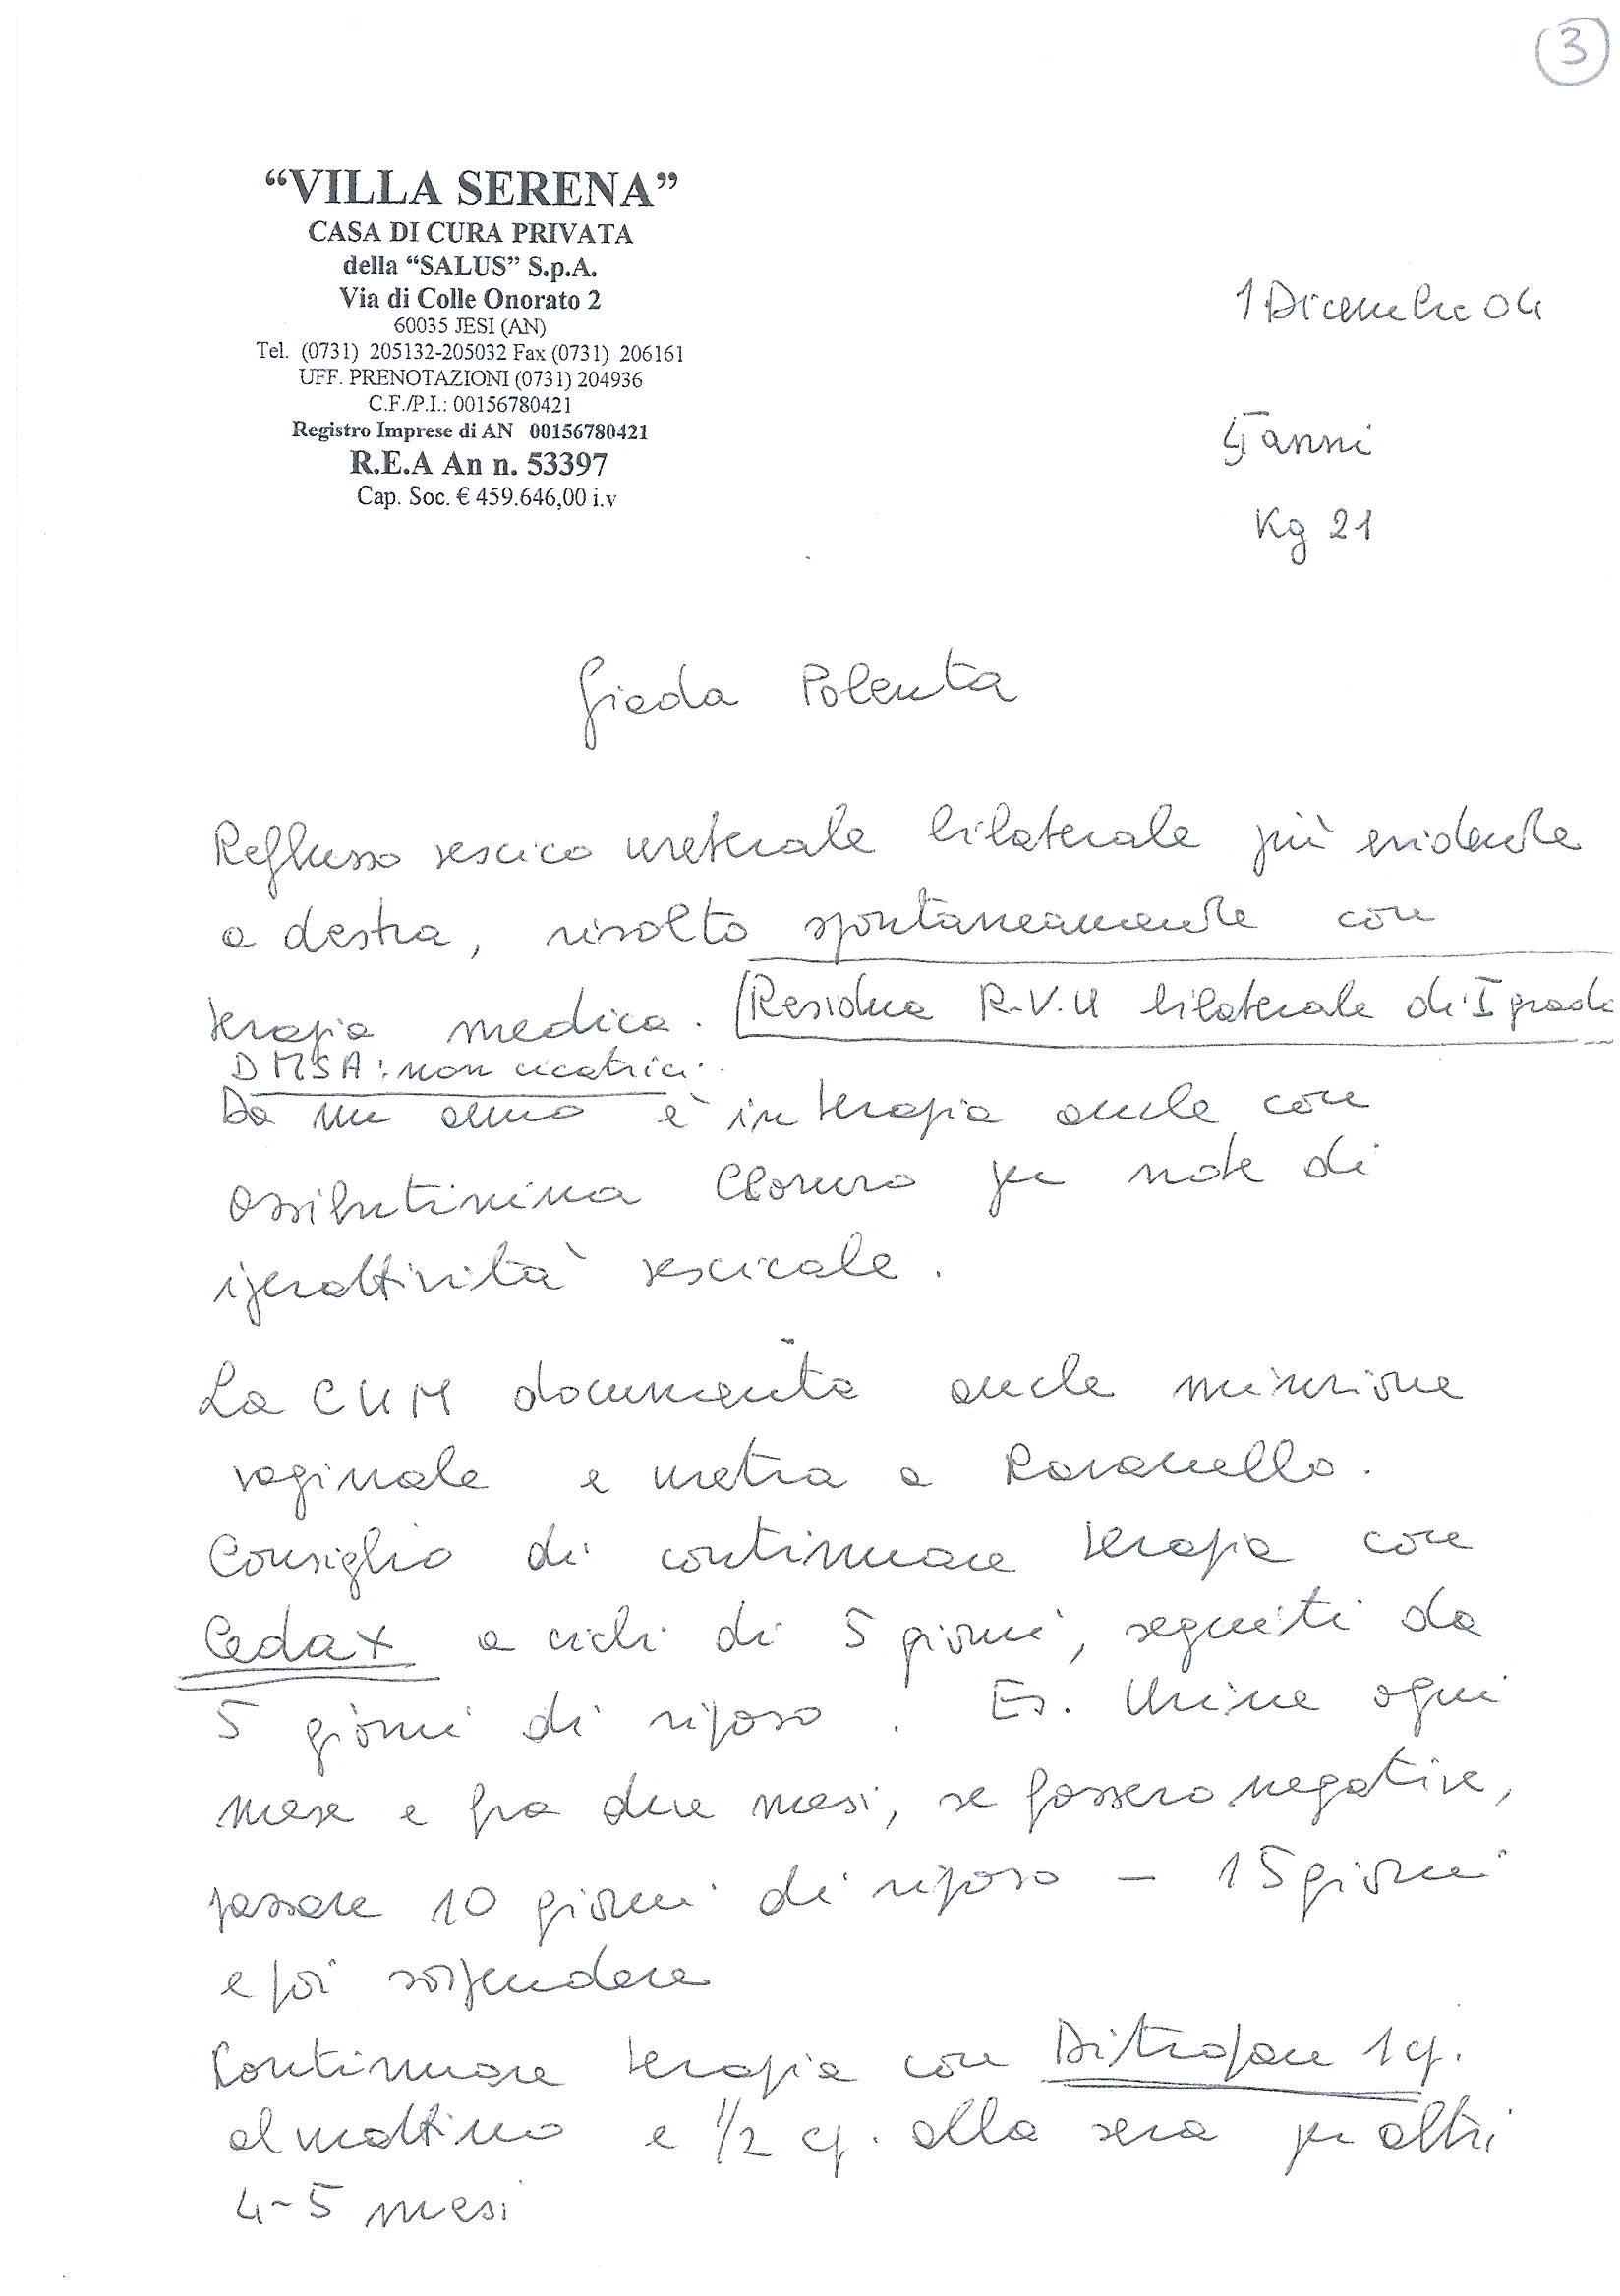 3
“VILLA SERENA”
CASA DI CURA PRIVATA
della “SALUS” S.p.A.
Via di Colle Onorato 2
60035 JESI (AN)
Tel. (0731) 205132-205032 Fax (0731) 206161
UFF. PRENOTAZIONI (0731) 204936
C.F./P.I.: 00156780421
Registro Imprese di AN 00156780421
R.E.A An n. 53397
Cap. Soc. € 459.646,00 i.v
1 Dicembre 04
anni
Kg 21
Giada Polenta
Reflusso vescico ureterale bilaterale più evidente
a destra, risolto spontaneamente con
terapia medica. Residua R.V.U bilaterale di I grado
DMSA: non cicatrici.
Da un anno è in terapia anche con
Ossibutinina Cloruro per note di
iperattività vescicale.
La CUM documenta anche minzione
vaginale e uretra a Ravanello.
Consiglio di continuare terapia con
Cedax a cicli di 5 giorni, seguiti da
5 giorni di riposo. Es. Urine ogni
mese e fra due mesi, se fossero negative,
passare 10 giorni di riposo - 15 giorni
e poi sospendere
Continuare terapia con Ditropan 1 cp.
al mattino e 1/2 cp. alla sera per altri
4-5 mesi